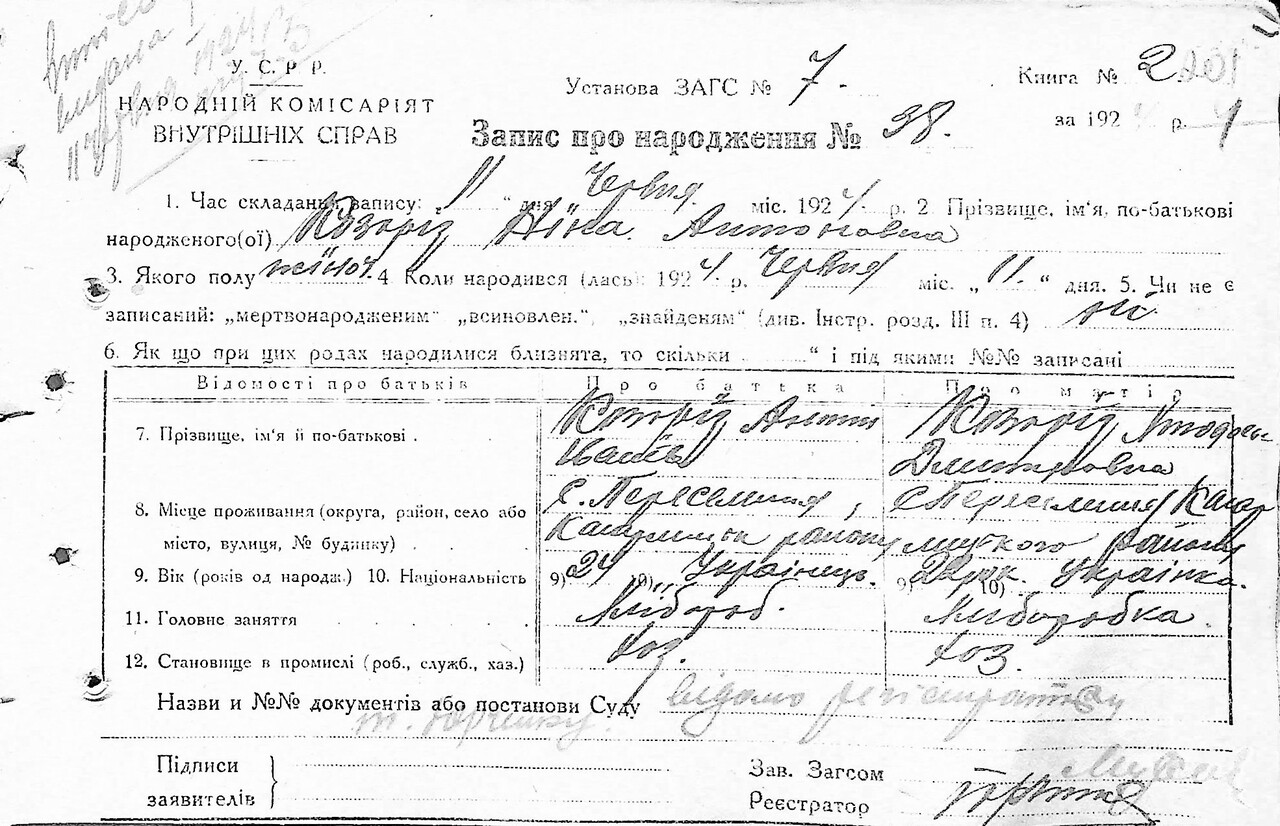 видана
У. С. Р. Р.
НАРОДНІЙ КОМІСАРІЯТ
ВНУТРІШНІХ СПРАВ
Установа ЗАГС № 7.
Книга № 2
за 192 р. 1
Запис про народження № 38.
1. Час складання запису: „11“ дня Червня міс. 1924 р. 2 Прізвище, ім'я, по-батькові
народженого(ої) Козоріз Ніна Антоновна
3. Якого полу жіноч. 4 Коли народився (лась): 1924 р. Червня міс. „11.“ дня. 5. Чи не є
записаний: „мертвонародженим“ „всиновлен.“, „знайденям“ (див. Інстр. розд. III п. 4) ні
6. Як що при цих родах народилися близнята, то скільки “ і під якими №№ записані
Відомості про батьків Про батька Про матір
7. Прізвище, ім'я й по-батькові Козоріз Антон Козоріз
Дмитровна
8. Місце проживання (округа, район, село або с. Переселення, с Переселення Кагар
місто, вулиця, № будинку) району лицького району
9. Вік (років од народж.) 10. Національність 9) 24 10) Українець. 9) рок. 10) Українка.
11. Головне заняття Хлібороб. Хліборобка.
12. Становище в промислі (роб., служб., хаз.) хоз. хоз.
Назви и №№ документів або постанови Суду відомо
Підписи
заявителів
Зав. Загсом
Реєстратор